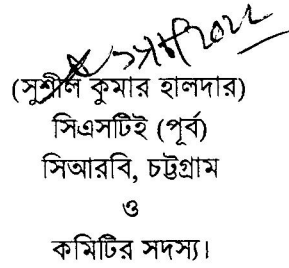 (সুশীল কুমার হালদার)
সিএসটিই (পূর্ব)
সিআরবি, চট্টগ্রাম
ও
কমিটির সদস্য।